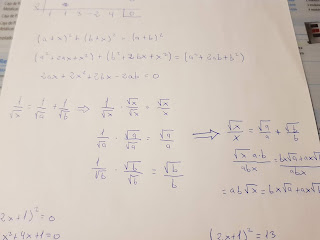 (a+x)² + (b+x)² = (a+b)²
(a²+2ax+x²) + (b²+2bx+x²) = [a²+2ab+b²]
2ax + 2x² + 2bx - 2ab = 0
1/√x = 1/√a + 1/√b ⇒ 1/√x · √x/√x = √x/x
1/√a · √a/√a = √a/a ⇒ √x/x = √a/a + √b/b
1/√b · √b/√b = √b/b
√x a·b/abx = bx√a + ax√
= ab√x = bx√a + ax√b
2x+1)² = 0
x²+4x+1=0
(2x+1)² = 13